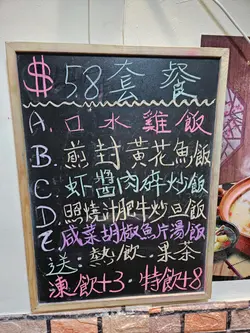 $58套餐
A.口水雞飯
B.煎封黃花魚飯
C.虾醬肉碎炒飯
D.照燒汁肥牛炒旦飯
E.咸菜胡椒魚片湯飯
送:熱飲.果茶
凍飲+3.特飲+8